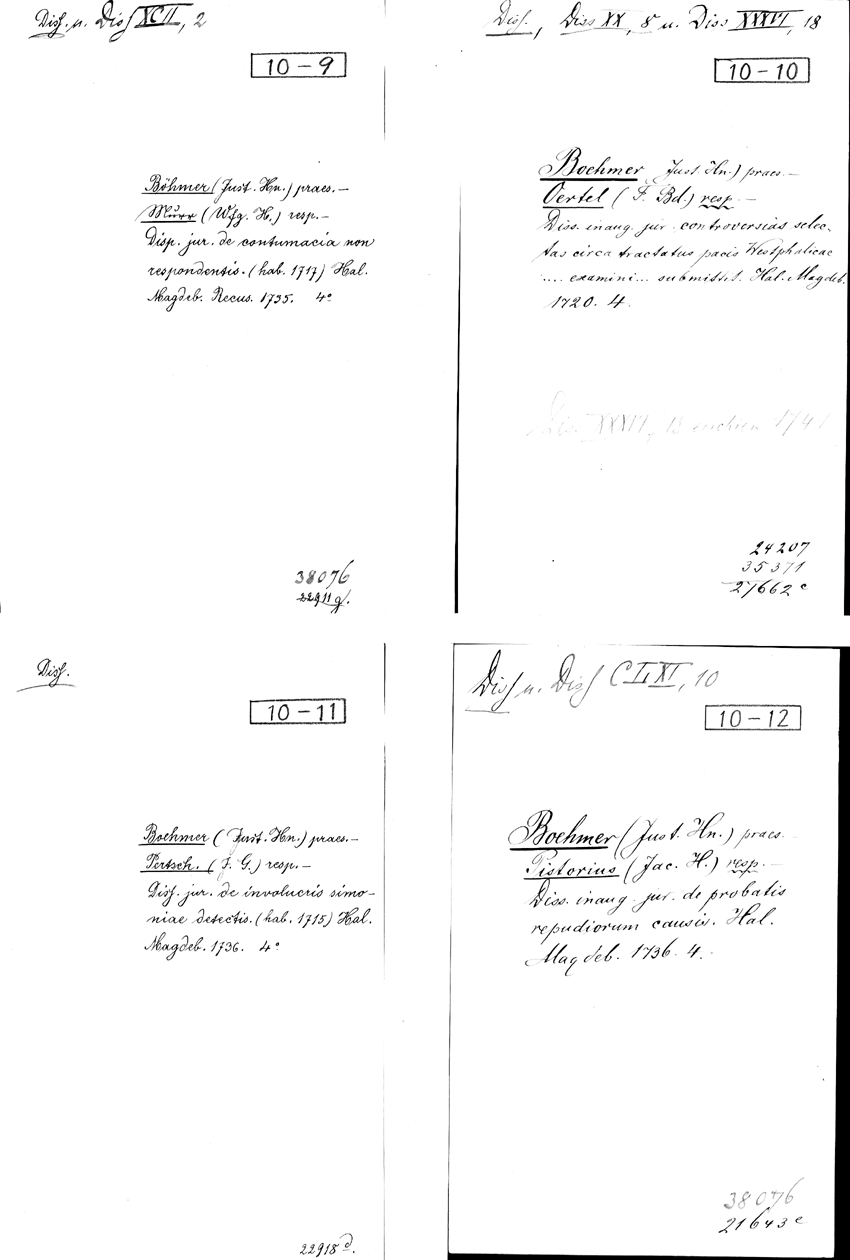 Diss. u. Diss XCII, 2
10-9
Böhmer (Just. Hn.) praes.-
Murr (Wfg. H.) resp.-
Disp. jur. de contumacia non
respondentis. (hab. 1717) Hal.
Magdeb. Recus. 1735. 4°
38076
22911 g.
Diss., Diss XX, 8 u. Diss XXXVI, 18
10-10
Boehmer Just. Hn.) praes.-
Oertel (F. Bd.) resp.-
Diss. inaug. jur. controversias selec-
tas circa tractatus pacis Westphalicae
.... examini... submittit. Hal. Magdeb.
1720. 4.
Diss. XXXVI, 18 1741
24207
35371
27662 c
Diss.
10-11
Boehmer (Just. Hn.) praes.-
Pertsch. (J. G.) resp.-
Diss. jur. de involucris simo-
niae detectis. (hab. 1715) Hal.
Magdeb. 1736. 4°
22918 d.
Diss u. Diss CLXI, 10
10-12
Boehmer (Just. Hn.) praes.-
Pistorius (Jac. H.) resp.-
Diss. inaug. jur. de probatis
repudiorum causis. Hal.
Magdeb. 1736. 4.
38076
21643 e